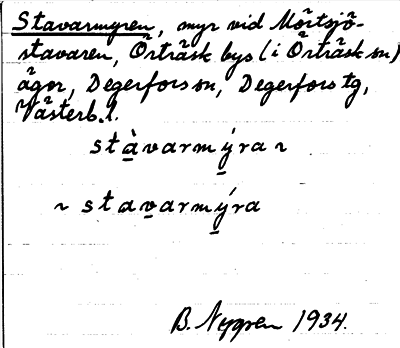 Stavarmyren, myr vid Mörtsjö-
stavaren, Örträsk bys (i Örträsk sn)
ägor, Degerfors sn, Degerfors tg,
Västerb. l.
stà̱varmý̱ra ~
~ stava̱rmý̱ra
B. Nygren 1934.